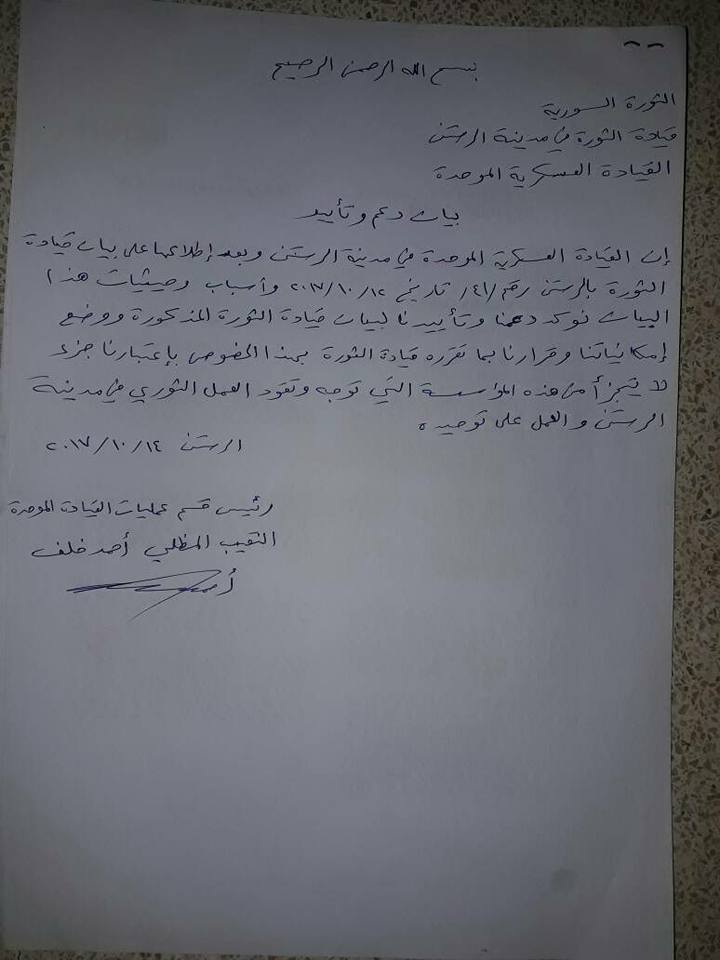 بسم الله الرحمن الرحيم
الثورة السورية
قيادة الثورة في مدينة الرستن
القيادة العسكرية الموحدة
بيان دعم وتأييد
إن القيادة العسكرية الموحدة في مدينة الرستن وبعد إطلاعها على بيان قيادة
الثورة بالرستن رقم /٤١/ تاريخ ٢٠١٧/١٠/١٢ وأسباب وحيثيات هذا
البيان نؤكد دعمنا وتأييدنا لبيان قيادة الثورة المذكورة ووضع
إمكانياتنا وقرارنا بما تقرره قيادة الثورة بهذا الخصوص بإعتبارنا جزء
لا يتجزأ من هذه المؤسسة التي توجه وتقود العمل الثوري في مدينة
الرستن والعمل على توحيده
الرستن ٢٠١٧/١٠/١٤
رئيس قسم عمليات القيادة الموحدة
النقيب المظلي أحمد خلف